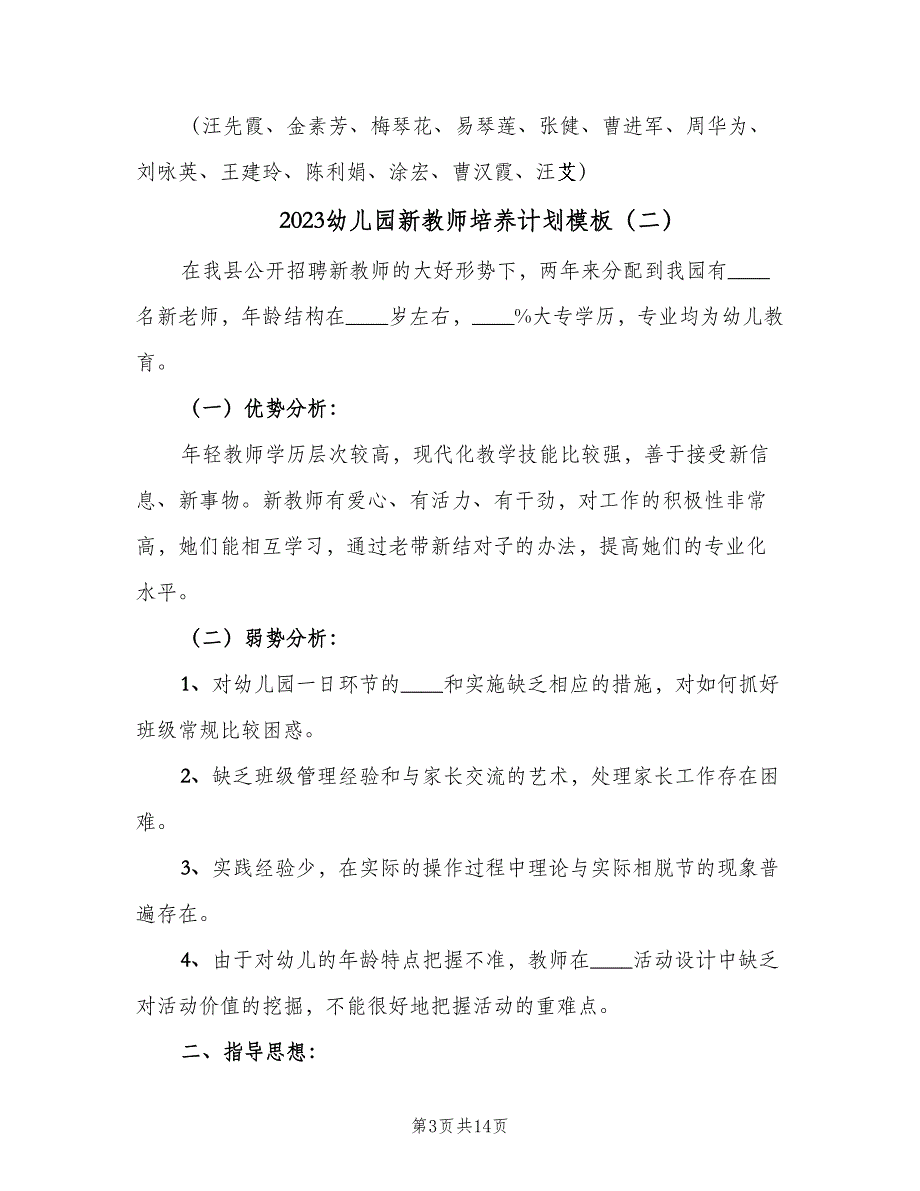 （汪先霞、金素芳、梅琴花、易琴莲、张健、曹进军、周华为、
刘咏英、王建玲、陈利娟、涂宏、曹汉霞、汪芆）
2023幼儿园新教师培养计划模板（二）
在我县公开招聘新教师的大好形势下，两年来分配到我园有____
名新老师，年龄结构在____岁左右，____%大专学历，专业均为幼儿教
育。
（一）优势分析：
年轻教师学历层次较高，现代化教学技能比较强，善于接受新信
息、新事物。新教师有爱心、有活力、有干劲，对工作的积极性非常
高，她们能相互学习，通过老带新结对子的办法，提高她们的专业化
水平。
（二）弱势分析：
1、对幼儿园一日环节的____和实施缺乏相应的措施，对如何抓好
班级常规比较困惑。
2、缺乏班级管理经验和与家长交流的艺术，处理家长工作存在困
难。
3、实践经验少，在实际的操作过程中理论与实际相脱节的现象普
遍存在。
4、由于对幼儿的年龄特点把握不准，教师在____活动设计中缺乏
对活动价值的挖掘，不能很好地把握活动的重难点。
二、指导思想：
第3页共14页